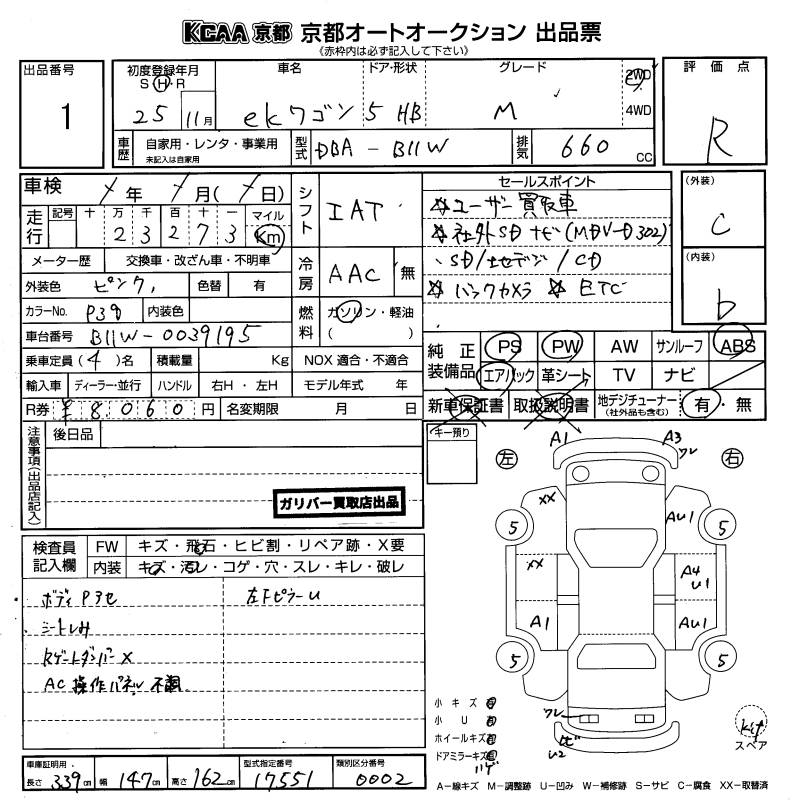 KCAA 京都 京都オートオークション 出品票
《赤枠内は必ず記入して下さい》
出品番号
1
初度登録年月
S・H・R
25 11月
車名
ekワゴン
ドア・形状
5 HB
グレード
M
2WD
4WD
評価点
R
車歴
自家用・レンタ・事業用
未記入は自家用
型式
DBA-B11W
排気
660 cc
車検 年 月( 日)
走行
記号 十 万 千 百 十 一 マイル
2 3 2 7 3 Km
シフト
IAT
セールスポイント
☆ユーザー買取車
☆社外SDナビ(MDV-D302)
、SD/地デジ/CD
☆バックカメラ ☆ETC
(外装)
C
(内装)
b
メーター歴 交換車・改ざん車・不明車
冷房
AAC 無
外装色 ピンク 色替 有
カラーNo. P39 内装色
燃料
ガソリン・軽油
( )
車台番号 B11W-0039195
乗車定員(4)名 積載量 Kg NOX 適合・不適合
輸入車 ディーラー・並行 ハンドル 右H・左H モデル年式 年
R券 ¥8060円 名変期限 月 日
純正装備品
PS PW AW サンルーフ ABS
エアバック 革シート TV ナビ
新車保証書 取扱説明書 地デジチューナー(社外品も含む) 有・無
注意事項(出品店記入)
後日品
ガリバー買取店出品
キー預り
左
右
A1
A3
ワレ
XX
AU1
5
5
XX
A4
U1
A1
AU1
5
5
ワレ
U2
検査員記入欄
FW キズ・飛石・ヒビ割・リペア跡・X要
内装 キズ・汚レ・コゲ・穴・スレ・キレ・破レ
ボディP3セ
左FピラーU
シートしみ
RゲートダンパーX
AC操作パネル不調
小キズ
小U
ホイールキズ
ドアミラーキズ
ハゲ
Kit
スペア
車庫証明用
長さ 339cm 幅 147cm 高さ 162cm
型式指定番号
17551
類別区分番号
0002
A―線キズ M―調整跡 U―凹み W―補修跡 S―サビ C―腐食 XX―取替済